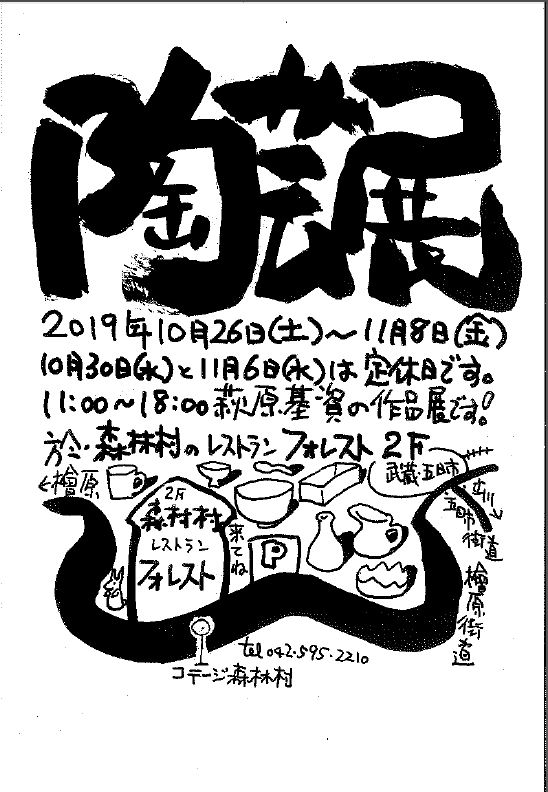 陶芸展
2019年10月26日(土)～11月8日(金)
10月30日(水)と11月6日(水)は定休日です。
11:00～18:00萩原基資の作品展です!
於・森林村のレストランフォレスト2F
←檜原
武蔵五日市
立川
五日市街道
2F
森林村
レストラン
フォレスト
来てね
P
檜原街道
tel 042.595.2210
コテージ森林村